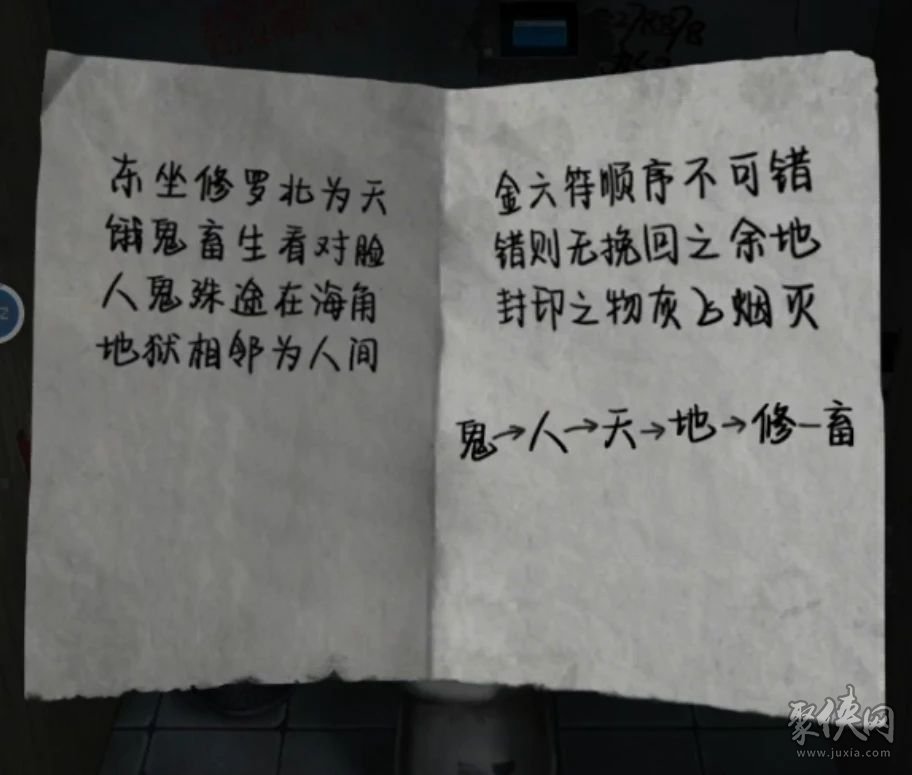 东坐修罗北为天
饿鬼畜生看对脸
人鬼殊途在海角
地狱相邻为人间
金六符顺序不可错
错则无挽回之余地
封印之物灰飞烟灭
鬼→人→天→地→修—畜
聚侠网
www.juxia.com